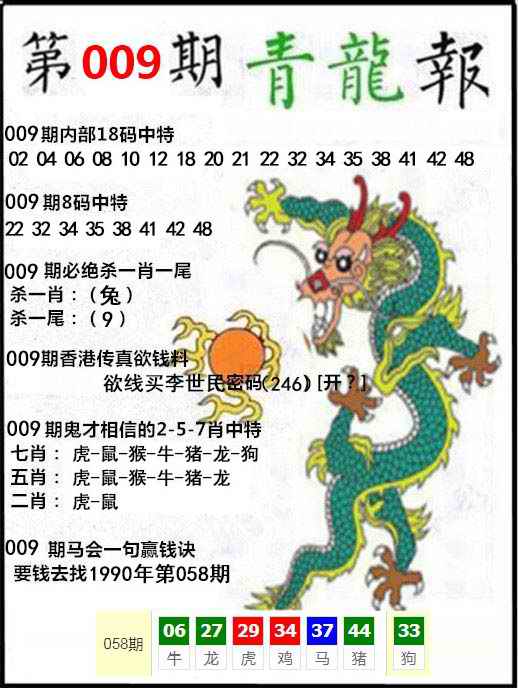 第009期青龍報
009期内部18码中特
02 04 06 08 10 12 18 20 21 22 32 34 35 38 41 42 48
009期8码中特
22 32 34 35 38 41 42 48
009 期必绝杀一肖一尾
杀一肖：（兔）
杀一尾：（9）
009期香港传真欲钱料
欲线买李世民密码(246) [开？]
009期鬼才相信的2-5-7肖中特
七肖： 虎-鼠-猴-牛-猪-龙-狗
五肖： 虎-鼠-猴-牛-猪-龙
二肖： 虎-鼠
009 期马会一句赢钱诀
要钱去找1990年第058期
058期 06 27 29 34 37 44 33
牛 龙 虎 鸡 马 猪 狗